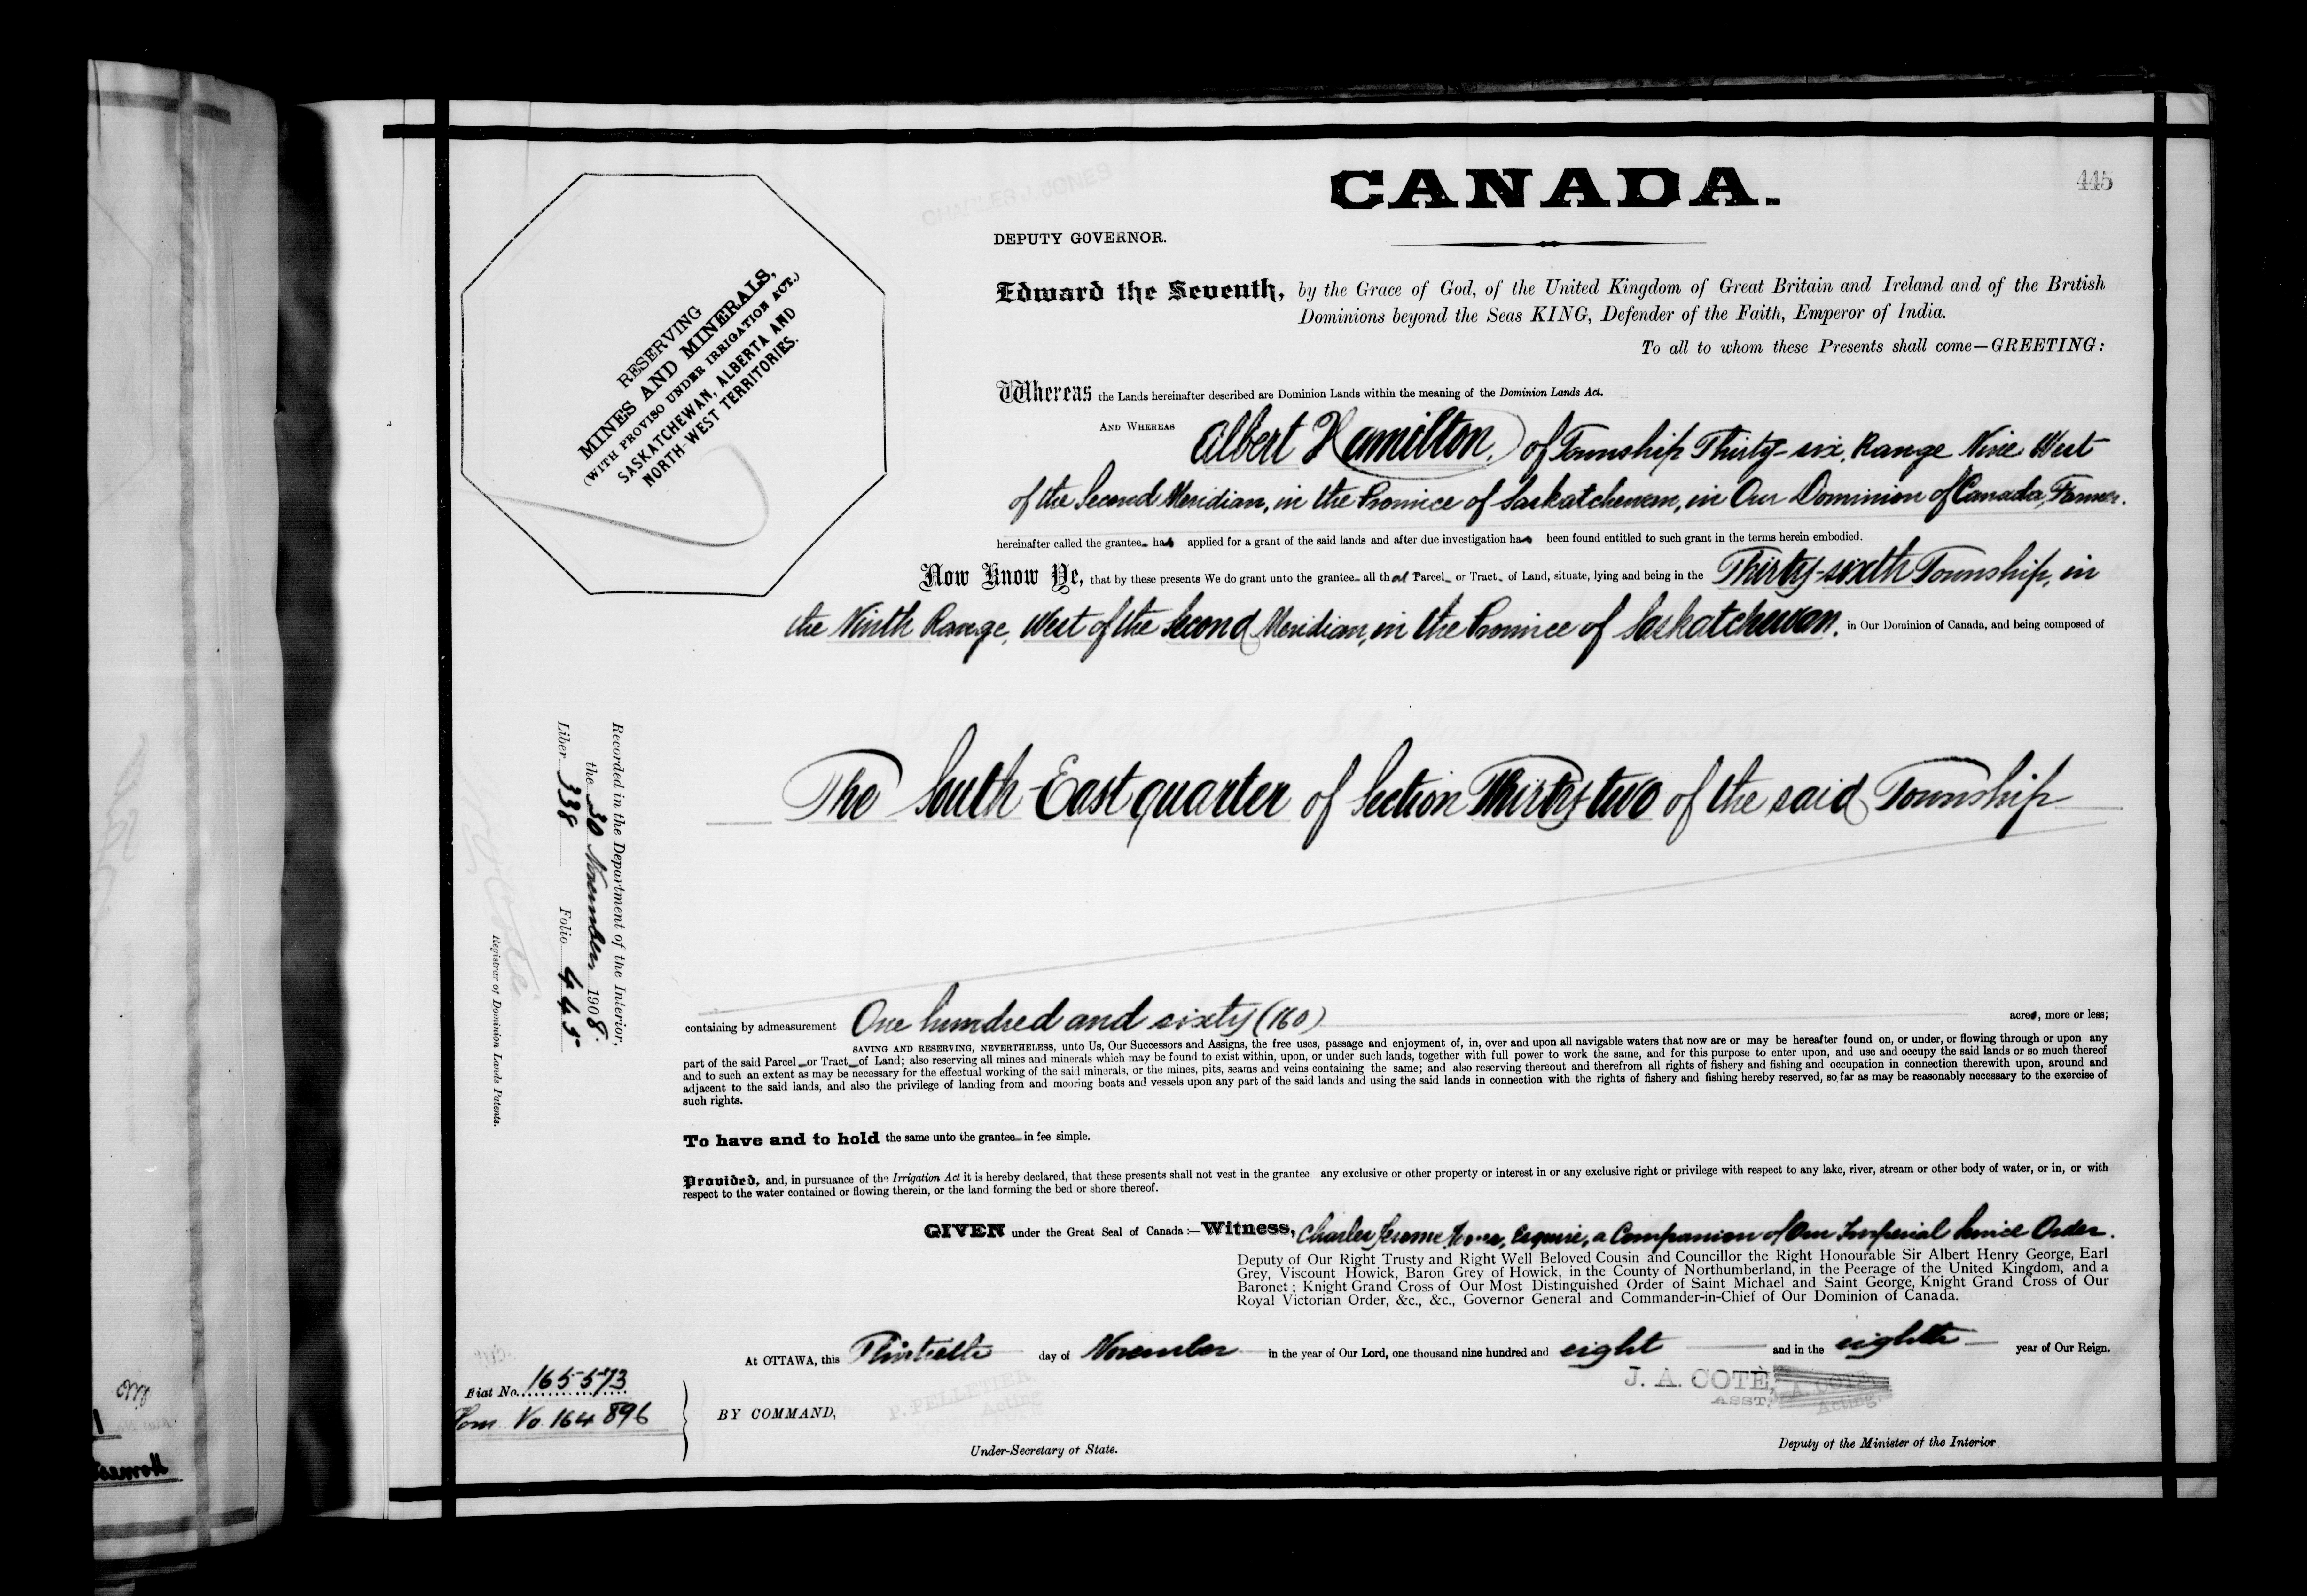 CANADA.
445
CHARLES J. JONES
DEPUTY GOVERNOR.
RESERVING
MINES AND MINERALS,
(WITH PROVISO UNDER IRRIGATION ACT.)
SASKATCHEWAN, ALBERTA AND
NORTH-WEST TERRITORIES.
Edward the Seventh, by the Grace of God, of the United Kingdom of Great Britain and Ireland and of the British
Dominions beyond the Seas KING, Defender of the Faith, Emperor of India.
To all to whom these Presents shall come—GREETING:
Whereas the Lands hereinafter described are Dominion Lands within the meaning of the Dominion Lands Act.
AND WHEREAS Albert Hamilton, of Township Thirty-six, Range Nine West
of the Second Meridian, in the Province of Saskatchewan, in Our Dominion of Canada, Farmer.
hereinafter called the grantee has applied for a grant of the said lands and after due investigation has been found entitled to such grant in the terms herein embodied.
Now Know Ye, that by these presents We do grant unto the grantee all that Parcel or Tract of Land, situate, lying and being in the Thirty-sixth Township, in
the Ninth Range, West of the Second Meridian, in the Province of Saskatchewan, in Our Dominion of Canada, and being composed of
The South East quarter of Section Thirty two of the said Township
Recorded in the Department of the Interior,
the 30 November 1908.
Liber 338 Folio 445
Registrar of Dominion Lands Patents.
containing by admeasurement One hundred and sixty (160) acres, more or less;
SAVING AND RESERVING, NEVERTHELESS, unto Us, Our Successors and Assigns, the free uses, passage and enjoyment of, in, over and upon all navigable waters that now are or may be hereafter found on, or under, or flowing through or upon any
part of the said Parcel or Tract of Land; also reserving all mines and minerals which may be found to exist within, upon, or under such lands, together with full power to work the same, and for this purpose to enter upon, and use and occupy the said lands or so much thereof
and to such an extent as may be necessary for the effectual working of the said minerals, or the mines, pits, seams and veins containing the same; and also reserving thereout and therefrom all rights of fishery and fishing and occupation in connection therewith upon, around and
adjacent to the said lands, and also the privilege of landing from and mooring boats and vessels upon any part of the said lands and using the said lands in connection with the rights of fishery and fishing hereby reserved, so far as may be reasonably necessary to the exercise of
such rights.
To have and to hold the same unto the grantee in fee simple.
Provided, and, in pursuance of the Irrigation Act it is hereby declared, that these presents shall not vest in the grantee any exclusive or other property or interest in or any exclusive right or privilege with respect to any lake, river, stream or other body of water, or in, or with
respect to the water contained or flowing therein, or the land forming the bed or shore thereof.
GIVEN under the Great Seal of Canada:—Witness, Charles Jerome Jones, Esquire, a Companion of Our Imperial Service Order.
Deputy of Our Right Trusty and Right Well Beloved Cousin and Councillor the Right Honourable Sir Albert Henry George, Earl
Grey, Viscount Howick, Baron Grey of Howick, in the County of Northumberland, in the Peerage of the United Kingdom, and a
Baronet; Knight Grand Cross of Our Most Distinguished Order of Saint Michael and Saint George, Knight Grand Cross of Our
Royal Victorian Order, &c., &c., Governor General and Commander-in-Chief of Our Dominion of Canada.
At OTTAWA, this Thirtieth day of November in the year of Our Lord, one thousand nine hundred and eight and in the eighth year of Our Reign.
Fiat No. 165573
Hom. No. 164896
BY COMMAND,
P. PELLETIER,
Acting
Under-Secretary of State.
J. A. COTÉ,
ASST.
J. A. COTE,
Acting.
Deputy of the Minister of the Interior.